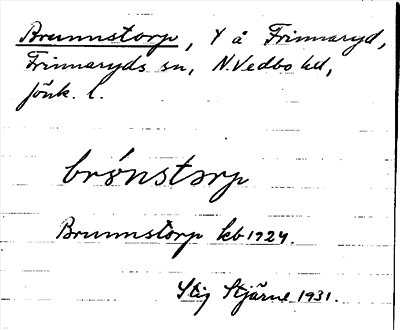 Brunnstorp, Y å Frinnaryd,
Frinnaryds sn, N. Vedbo hd,
Jönk. l.
brónstorp
Brunnstorp kb 1924.
Stig Stjärne 1931.